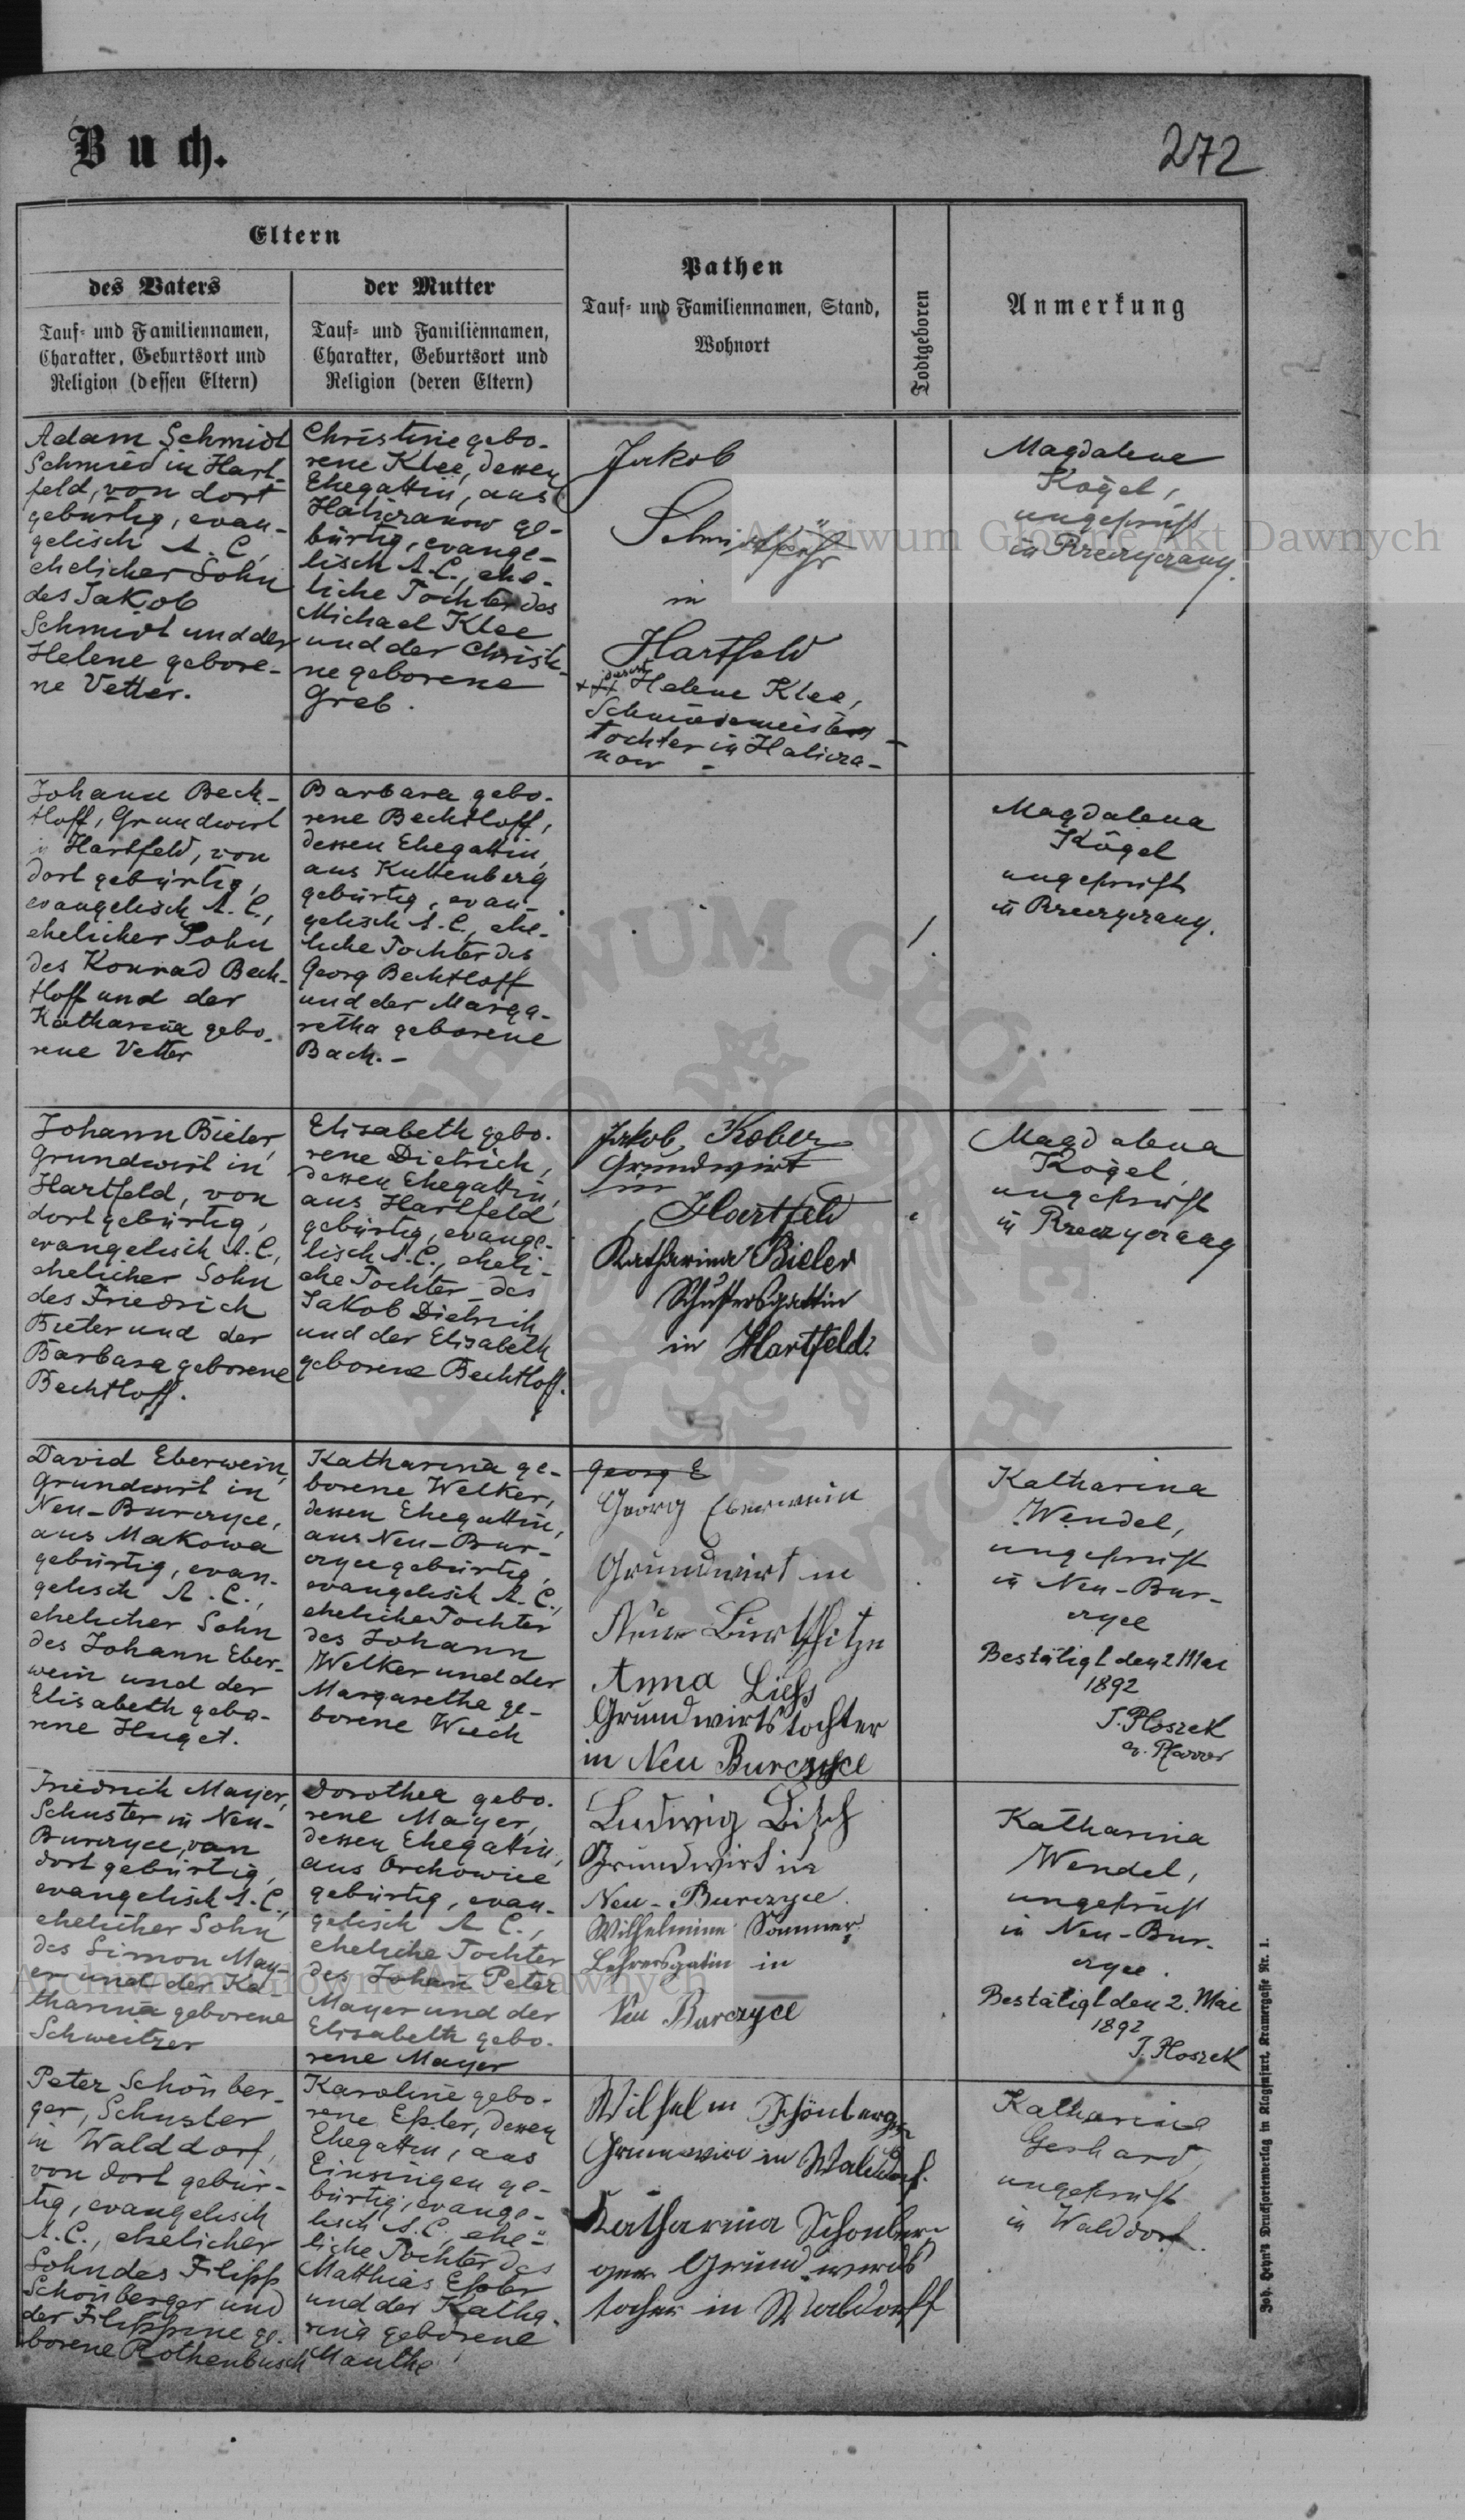 Buch.
272
Eltern
des Vaters
Tauf- und Familiennamen,
Charakter, Geburtsort und
Religion (dessen Eltern)
der Mutter
Tauf- und Familiennamen,
Charakter, Geburtsort und
Religion (deren Eltern)
Pathen
Tauf- und Familiennamen, Stand,
Wohnort
Todtgeboren
Anmerkung
Adam Schmidt
Schmied in Hart-
feld, von dort
gebürtig, evan-
gelisch A. C.,
ehelicher Sohn
des Jakob
Schmidt und der
Helene gebore-
ne Vetter.
Christine gebo-
rene Klee, dessen
Ehegattin, aus
Halicranow ge-
bürtig, evange-
lisch A.C., ehe-
liche Tochter des
Michael Klee
und der Christi-
ne geborene
Greb.
Jakob
in
Hartfeld
Helene Klee,
Schmiedemeisters
tochter in Halicra-
now -
Magdalene
Kögel,
ungeprüft
in
Johann Bech-
tloff, Grundwirt
in Hartfeld, von
dort gebürtig,
evangelisch A. C.,
ehelicher Sohn
des Konrad Bech-
tloff und der
Katharina gebo-
rene Vetter
Barbara gebo-
rene Bechtloff,
dessen Ehegattin,
aus Kuttenberg
gebürtig, evan-
gelisch A. C., ehe-
liche Tochter des
Georg Bechtloff
und der Marga-
retha geborene
Bach. -
/
Magdalena
Kögel
ungeprüft
in
Johann Bieler,
Grundwirt in
Hartfeld, von
dort gebürtig,
evangelisch A. C.,
ehelicher Sohn
des Friedrich
Bieler und der
Barbara geborene
Bechtloff.
Elisabeth gebo-
rene Dietrich,
dessen Ehegattin,
aus Hartfeld
gebürtig, evange-
lisch A. C., eheli-
che Tochter des
Jakob Dietrich
und der Elisabeth
geborene Bechtloff.
Jakob Kober
Grundwirt
in
Hartfeld
Katharina Bieler
Schustersgattin
in Hartfeld.
Magdalena
Kögel,
ungeprüft
in
David Eberwein,
Grundwirt in
Neu-Burczyce,
aus Makowa
gebürtig, evan-
gelisch A. C.,
ehelicher Sohn
des Johann Eber-
wein und der
Elisabeth gebo-
rene Huget.
Katharina ge-
borene Welker,
dessen Ehegattin,
aus Neu-Bur-
czyce gebürtig,
evangelisch A. C.,
eheliche Tochter
des Johann
Welker und der
Margarethe ge-
borene Wuch
Georg E
Georg Eberwein
Grundwirt in
Neu
Anna Liehs
Grundwirtstochter
in Neu Burczyce
Katharina
Wendel,
ungeprüft
in Neu-Bur-
czyce
Bestätigt den 2 Mai
1892
J. Ploszek
ev. Pfarrer
Friedrich Mayer,
Schuster in Neu-
Burczyce, von
dort gebürtig,
evangelisch A. C.,
ehelicher Sohn
des Simon May-
er und der Ka-
tharina geborene
Schweitzer
Dorothea gebo-
rene Mayer,
dessen Ehegattin,
aus Orchowice
gebürtig, evan-
gelisch A C.,
eheliche Tochter
des Johan Peter
Mayer und der
Elisabeth gebo-
rene Mayer
Ludwig Bisch
Grundwirt in
Neu-Burczyce.
Wilhelmine Sommer
Lehrersgatin in
Neu Burczyce
Katharina
Wendel,
ungeprüft
in Neu-Bur-
czyce.
Bestätigt den 2. Mai
1892
J. Ploszek
Peter Schönber-
ger, Schuster
in Walddorf,
von dort gebür-
tig, evangelisch
A. C., ehelicher
Sohn des Filipp
Schönberger und
der Filippine ge-
borene Rothenbusch
Karoline gebo-
rene Eßler, dessen
Ehegattin, aus
Einsingen ge-
bürtig, evange-
lisch A. C., ehe-
liche Tochter des
Matthias Eßler
und der Katha-
rina geborene
Manthe
Wilhelm Schönberger
Grundwirt in Walddorf.
Katharina Schönber-
ger Grundwirds
tochter in Walddorff
Katharina
Gerhard,
ungeprüft
in Walddorf.
Joh. Heyn's Drucksortenverlag in Klagenfurt, Kramergasse Nr. 1.
Archiwum Główne Akt Dawnych
Archiwum Główne Akt Dawnych